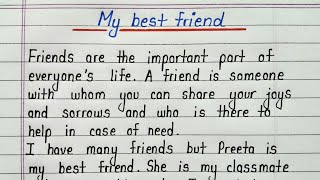 My best friend
Friends are the important part of
everyone's life. A friend is someone
with whom you can share your joys
and sorrows and who is there to
help in case of need.
I have many friends but Preeta is
my best friend. She is my classmate